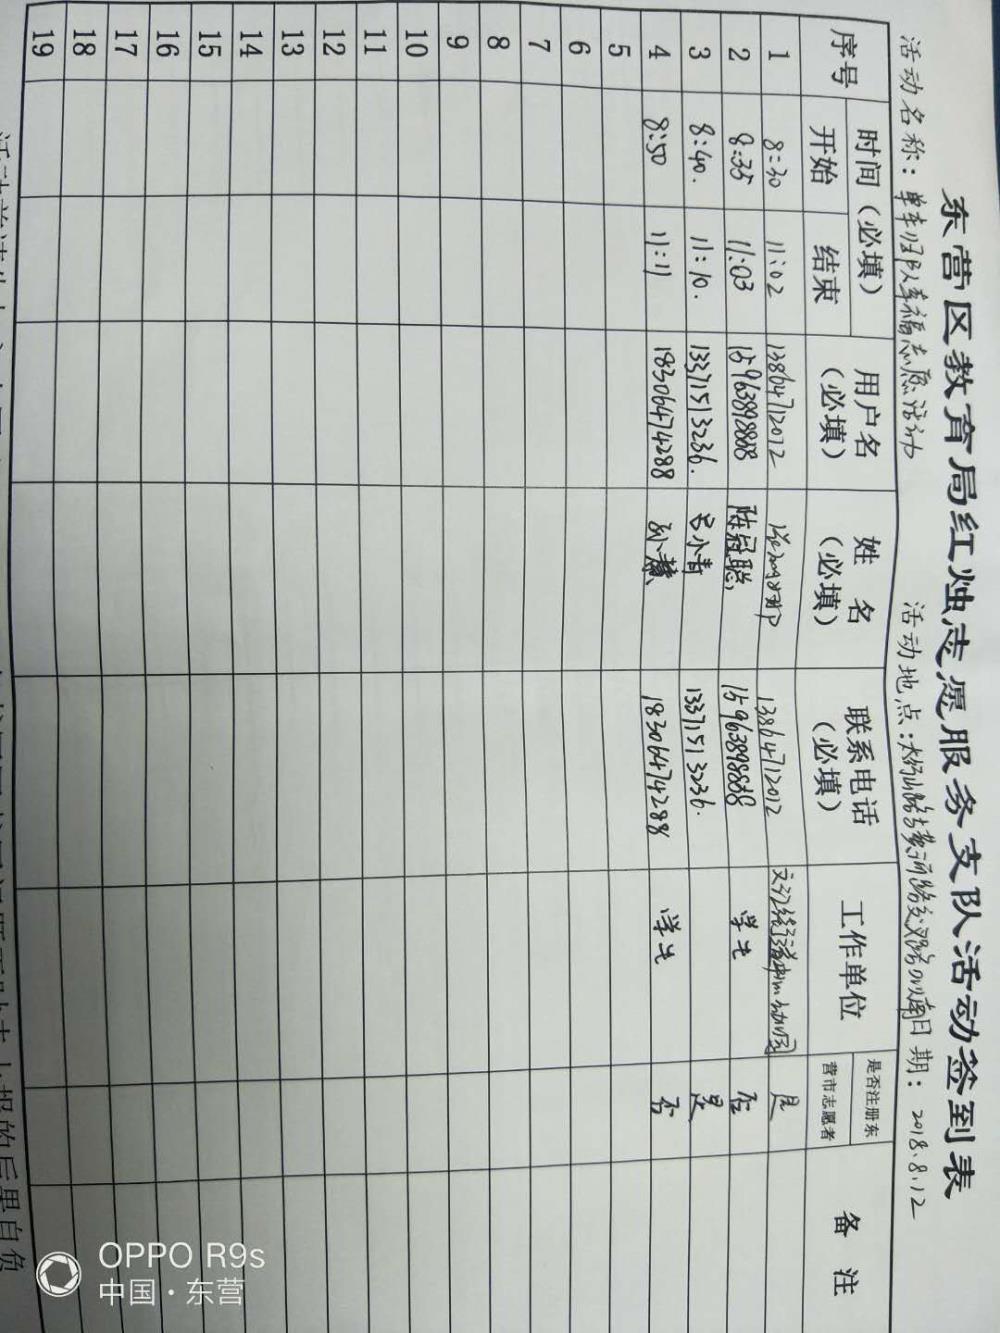 东营区教育局红烛志愿服务支队活动签到表
活动名称：单车归队幸福志愿活动 活动地点： 日期：2018.8.12
序号 时间（必填） 用户名（必填） 姓名（必填） 联系电话（必填） 工作单位 是否注册东营市志愿者 备注
开始 结束
1 8:30 11:02 13864712012 13864712012 是
2 8:35 11:03 15963898808 陈冠聪 15963898808 学生 否
3 8:40. 11:10. 13371513236. 吕小青 13371513236. 是
4 8:50 11:11 18306474288 孙慧 18306474288 学生 否
5
6
7
8
9
10
11
12
13
14
15
16
17
18
19
上报的后果自负
OPPO R9s
中国·东营